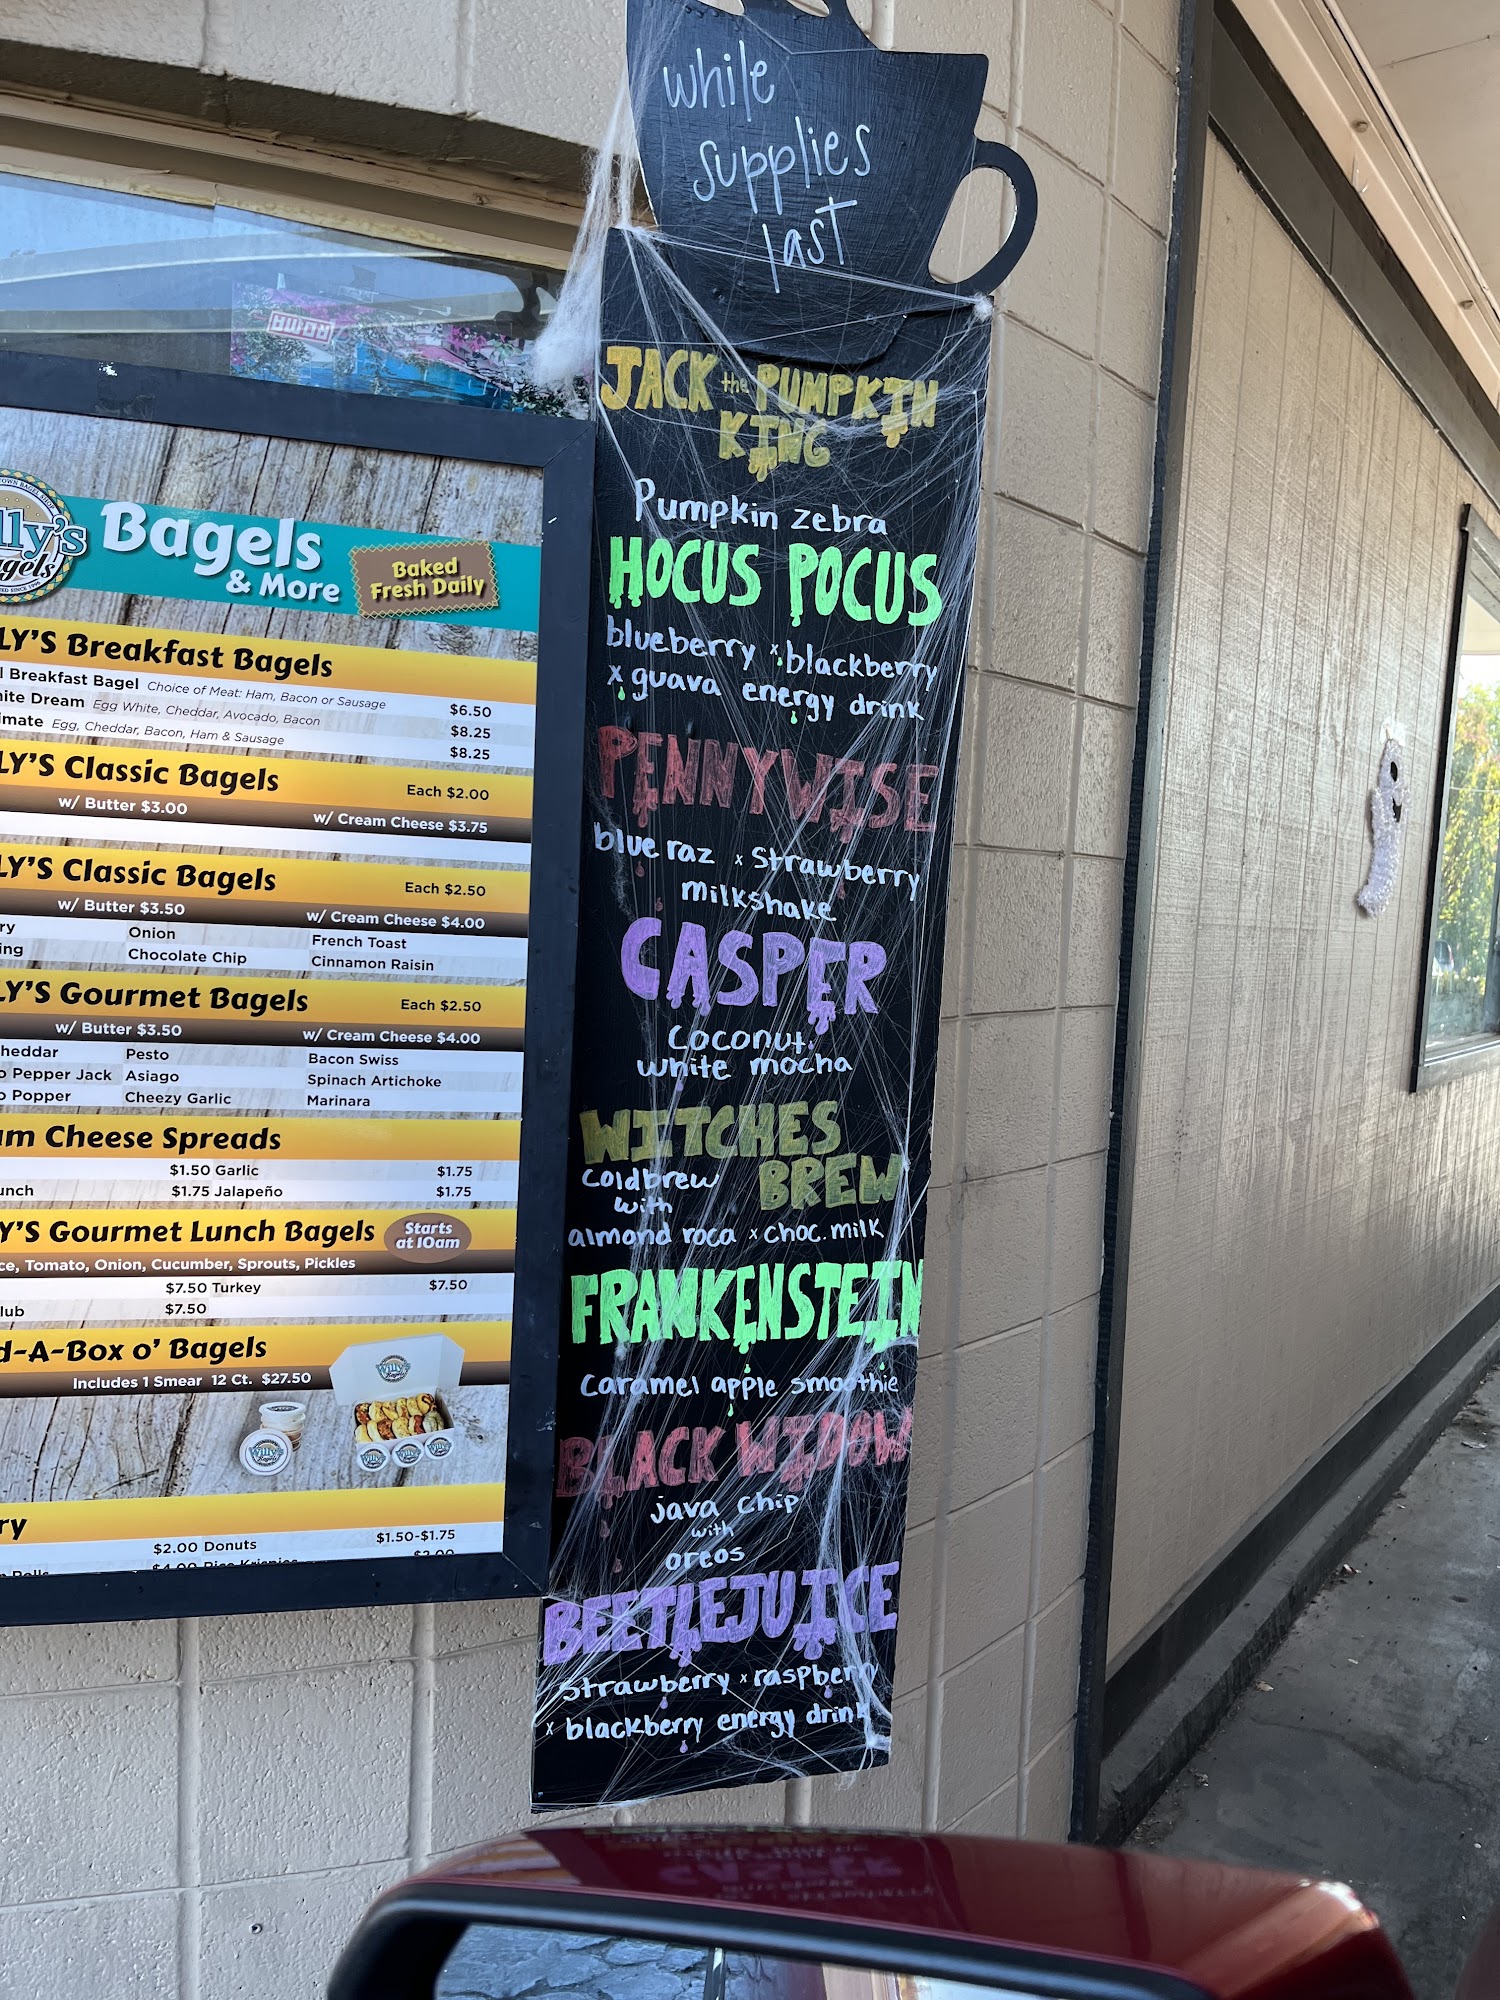 while
supplies
last
JACK the PUMPKIN
KING
Pumpkin zebra
HOCUS POCUS
blueberry x blackberry
x guava energy drink
PENNYWISE
blue raz x strawberry
milkshake
CASPER
Coconut
white mocha
WITCHES
BREW
Coldbrew
with
almond roca x choc. milk
FRANKENSTEIN
Caramel apple smoothie
BLACK WIDOW
java chip
with
oreos
BEETLEJUICE
Strawberry x raspberry
x blackberry energy drink
Bagels
& More
Baked
Fresh Daily
LY'S Breakfast Bagels
l Breakfast Bagel Choice of Meat: Ham, Bacon or Sausage $6.50
ite Dream Egg White, Cheddar, Avocado, Bacon $8.25
imate Egg, Cheddar, Bacon, Ham & Sausage $8.25
LY'S Classic Bagels Each $2.00
w/ Butter $3.00 w/ Cream Cheese $3.75
LY'S Classic Bagels Each $2.50
w/ Butter $3.50 w/ Cream Cheese $4.00
ry Onion French Toast
ing Chocolate Chip Cinnamon Raisin
LY'S Gourmet Bagels Each $2.50
w/ Butter $3.50 w/ Cream Cheese $4.00
heddar Pesto Bacon Swiss
o Pepper Jack Asiago Spinach Artichoke
o Popper Cheezy Garlic Marinara
am Cheese Spreads
$1.50 Garlic $1.75
unch $1.75 Jalapeño $1.75
Y'S Gourmet Lunch Bagels
Starts
at 10am
ce, Tomato, Onion, Cucumber, Sprouts, Pickles
$7.50 Turkey $7.50
lub $7.50
d-A-Box o' Bagels
Includes 1 Smear 12 Ct. $27.50
ry
$2.00 Donuts $1.50-$1.75
Rolls $4.00 Rice Krispies $2.00